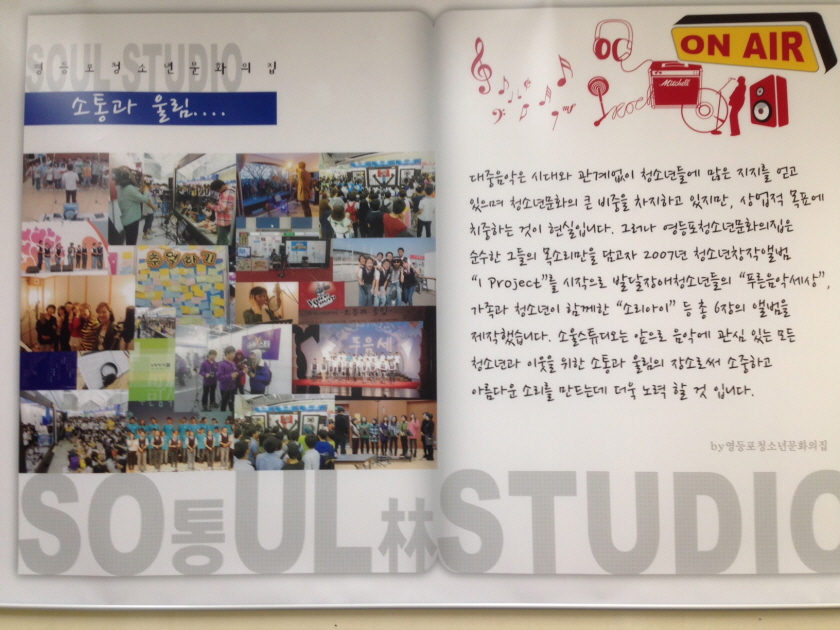 SOUL STUDIO
영등포청소년문화의집
소통과 울림....
ON AIR
Mitchell
대중음악은 시대와 관계없이 청소년들에 많은 지지를 얻고
있으며 청소년문화의 큰 비중을 차지하고 있지만, 상업적 목표에
치중하는 것이 현실입니다. 그러나 영등포청소년문화의집은
순수한 그들의 목소리만을 담고자 2007년 청소년창작앨범
"I Project"를 시작으로 발달장애청소년들의 "푸른음악세상",
가족과 청소년이 함께한 "소리아이" 등 총 6장의 앨범을
제작했습니다. 소울스튜디오는 앞으로 음악에 관심 있는 모든
청소년과 이웃을 위한 소통과 울림의 장소로써 소중하고
아름다운 소리를 만드는데 더욱 노력 할 것 입니다.
by영등포청소년문화의집
SO통UL林STUDIO